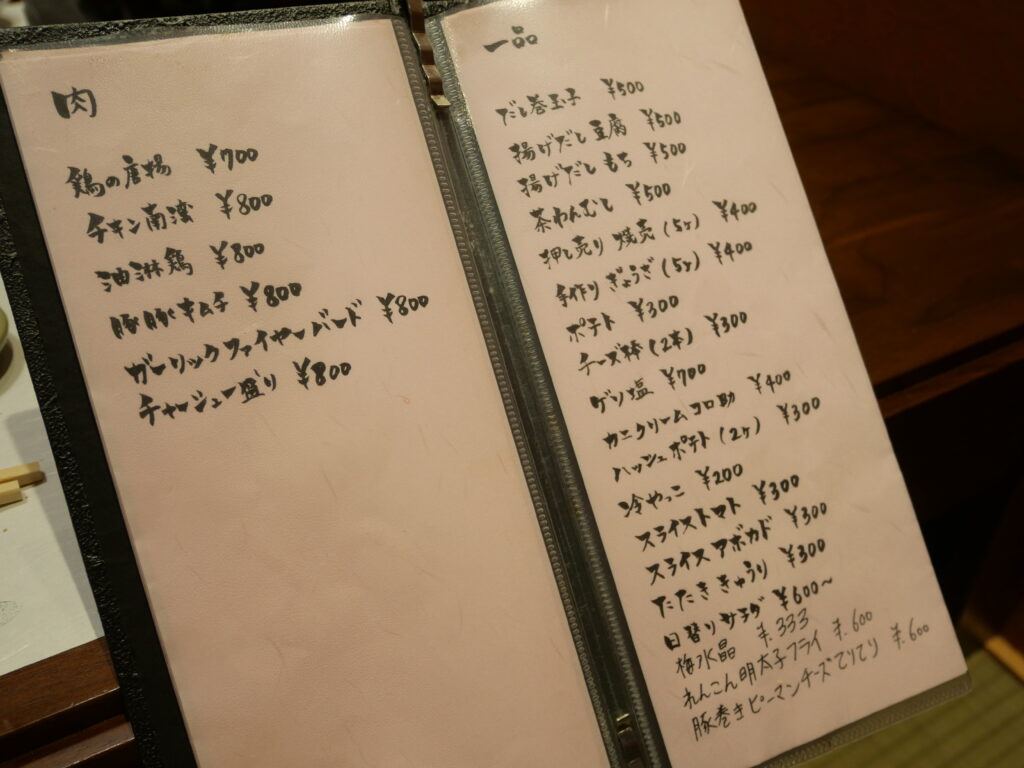 肉
鶏の唐揚 ¥700
チキン南蛮 ¥800
油淋鶏 ¥800
豚豚キムチ ¥800
ガーリックファイヤーバード ¥800
チャーシュー盛り ¥800
一品
だし巻玉子 ¥500
揚げだし豆腐 ¥500
揚げだしもち ¥500
茶わんむし ¥500
押し売り焼売(5ヶ) ¥400
手作りぎょうざ(5ヶ) ¥400
ポテト ¥300
チーズ棒(2本) ¥300
ゲソ塩 ¥700
カニクリームコロ助 ¥400
ハッシュポテト(2ヶ) ¥300
冷やっこ ¥200
スライストマト ¥300
スライスアボカド ¥300
たたききゅうり ¥300
日替りサラダ ¥600~
梅水晶 ¥.333
れんこん明太子フライ ¥.600
豚巻きピーマンチーズてりてり ¥.600